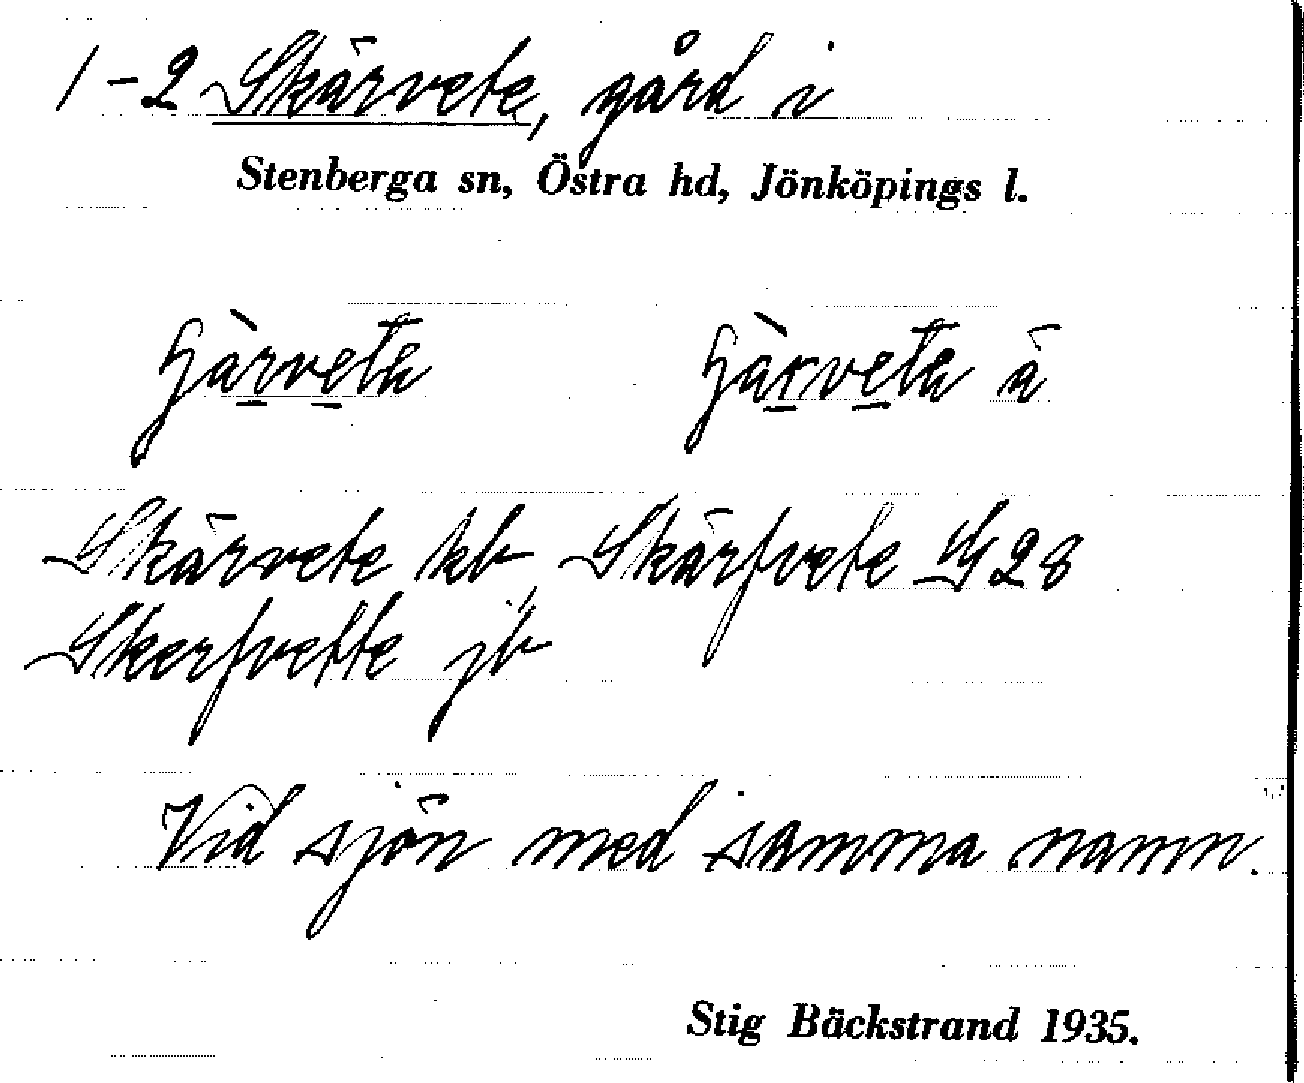 1-2 Skärvete, gård i
Stenberga sn, Östra hd, Jönköpings l.
Skärvete kb Skärfvete
Skerfvette jb
Vid sjön med samma namn.
Stig Bäckstrand 1935.